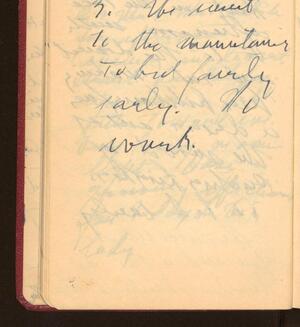 3. We went
to the mountains
To bed fairly
early. No
work.